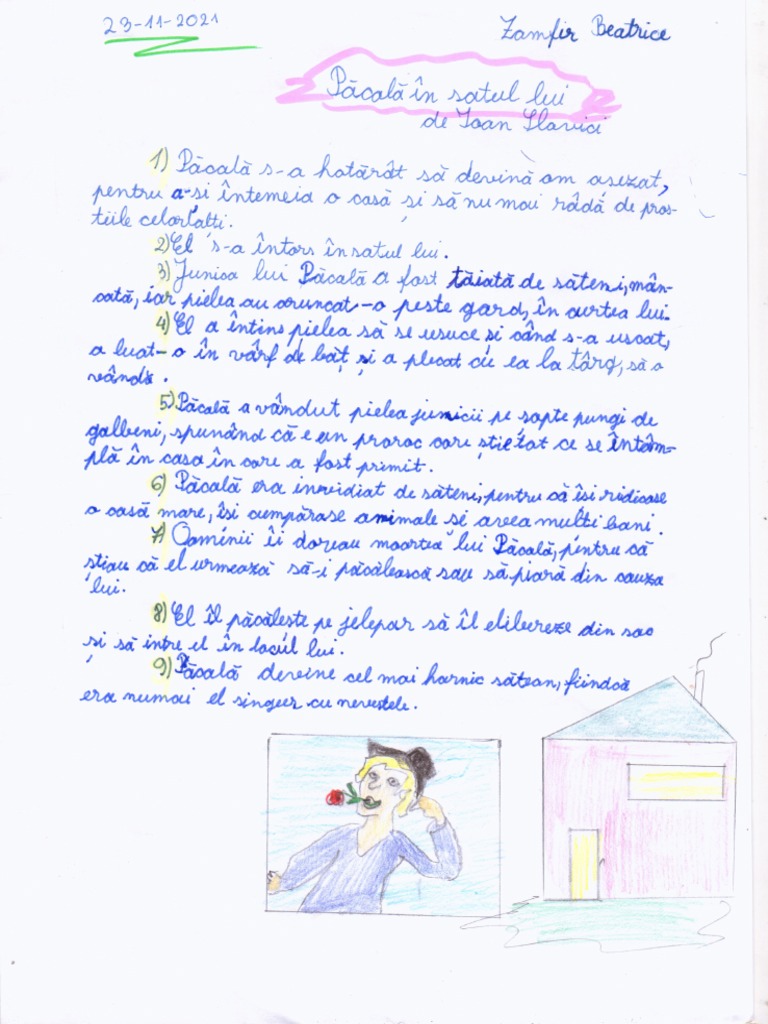 23-11-2021
Zamfir Beatrice
Păcală în satul lui
de Ioan Slavici
1) Păcală s-a hotărât să devină om așezat,
pentru a-și întemeia o casă și să nu mai râdă de pros-
tiile celorlalți.
2) El s-a întors în satul lui.
3) Junica lui Păcală a fost tăiată de săteni, mân-
cată, iar pielea au aruncat-o peste gard, în curtea lui.
4) El a întins pielea să se usuce și când s-a uscat,
a luat-o în vârf de băț și a plecat cu ea la târg, să o
vândă.
5) Păcală a vândut pielea junicii pe șapte pungi de
galbeni, spunând că e un proroc care știe tot ce se întâm-
plă în casa în care a fost primit.
6) Păcală era invidiat de săteni, pentru că își ridicase
o casă mare, își cumpărase animale și avea mulți bani.
7) Oamenii îi doreau moartea lui Păcală, pentru că
știau că el urmează să-i păcălească sau să piară din cauza
lui.
8) El îl păcălește pe jelepar să îl elibereze din sac
și să intre el în locul lui.
9) Păcală devine cel mai harnic sătean, fiindcă
era numai el singur cu nevestele.